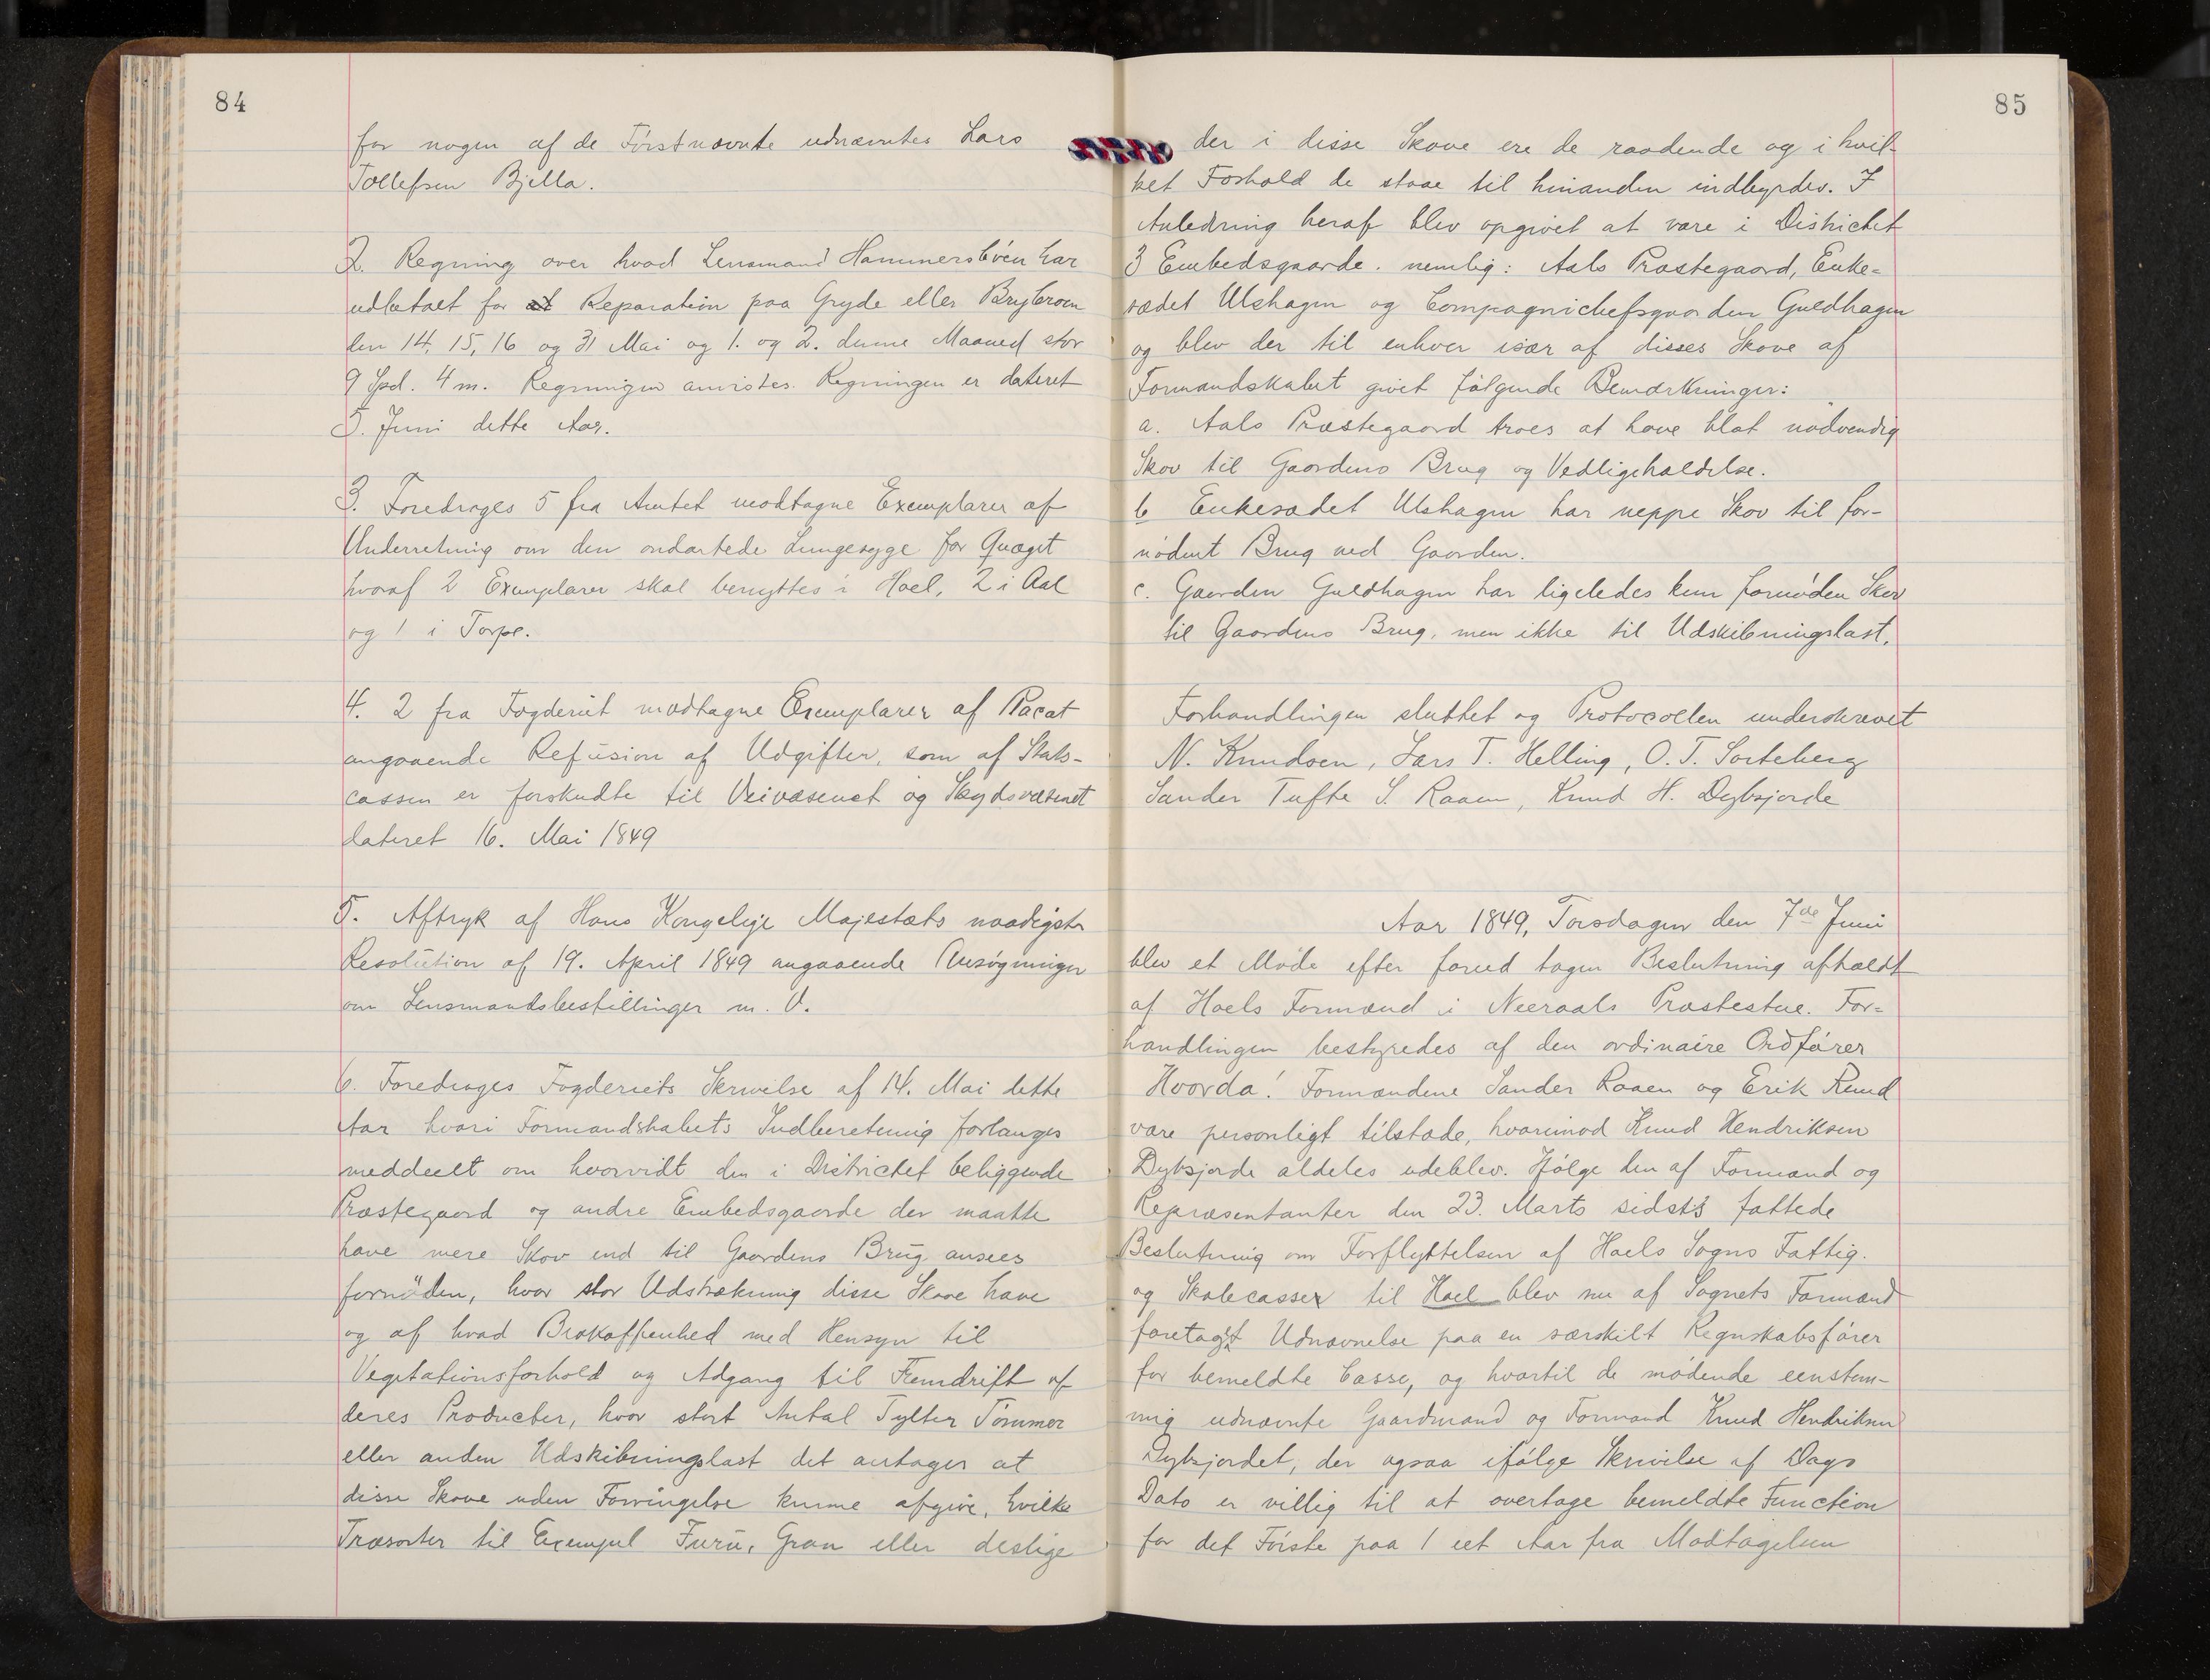 84
for nogen af de Förstnævnte udnævntes Lars
Tollefsen Bjella.
2. Regning over hvad Lensmand Hammersböen har
udbetalt for at Reparation paa Gryde eller Brybroen
den 14, 15, 16 og 31 Mai og 1. og 2. denne Maaned stor
9 Spd. 4 m. Regningen anvistes. Regningen er dateret
5. Juni dette Aar.
3. Foredroges 5 fra Amtet modtagne Exemplarer af
Underretning om den ondartede Lungesyge for Quæget
hvoraf 2 Exemplarer skal benyttes i Hoel, 2 i Aal
og 1 i Torpe.
4. 2 fra Fogderiet modtagne Exemplarer af Placat
angaaende Refusion af Udgifter, som af Stats-
cassen er forskudte til Veivæsenet og Skydsvæsenet
dateret 16. Mai 1849
5. Aftryk af Hans Kongelige Majestæts naadigste
Resolution af 19. April 1849 angaaende Ansögninger
om Lensmandsbestillinger m. V.
6. Foredroges Fogderiets Skrivelse af 14. Mai dette
Aar hvori Formandskabets Indberetning forlanges
meddeelt om hvorvidt den i Districtet beliggende
Præstegaard og andre Embedsgaarde der maatte
have mere Skov end til Gaardens Brug ansees
fornöden, hvor stor Udstrækning disse Skove have
og af hvad Beskaffenhed med Hensyn til
Vegetationsforhold og Adgang til Fremdrift af
deres Producter, hvor stort Antal Tylter Tömmer
eller anden Udskibningslast det antages at
disse Skove uden Forringelse kunne afgive, hvilke
Træsorter til Exempel Furu, Gran eller deslige
85
der i disse Skove ere de raadende og i hvil-
ket Forhold de staae til hinanden indbyrdes. I
Anledning heraf blev opgivet at være i Districtet
3 Embedsgaarde. nemlig: Aals Præstegaard, Enke-
sædet Ulshagen og Compagnichefsgaarden Guldhagen
og blev der til enhver især af disses Skove af
Formandskabet givet fölgende Bemærkninger:
a. Aals Præstegaard troes at have blot nödvendig
Skov til Gaardens Brug og Vedligeholdelse.
b Enkesædet Ulshagen har neppe Skov til for-
nödent Brug ved Gaarden.
c. Gaarden Guldhagen har ligeledes kun fornöden Skov
til Gaardens Brug, men ikke til Udskibningslast.
Forhandlingen sluttet og Protocollen underskrevet
N. Knudsen, Lars T. Helling, O. T. Sorteberg
Sander Tufte S. Raaen, Knud H. Dybsjorde
Aar 1849, Torsdagen den 7de Juni
blev et Möde efter forud tagen Beslutning afholdt
af Hoels Formænd i Neeraals Præstestue. For-
handlingen bestyredes af den ordinaire Ordförer
Hoorda! Formændene Sander Raaen og Erik Ruud
vare personligt tilstæde, hvorimod Knud Hendriksen
Dybsjorde aldeles udeblev. Ifölge den af Formænd og
Repræsentanter den 23. Marts sidst fattede
Beslutning om Forflyttelsen af Hoels Sogns Fattig-
og Skolecasser til Hoel blev nu af Sognets Formænd
foretaget Udnævnelse paa en særskilt Regnskabsförer
for bemeldte Casse, og hvortil de mödende eenstem-
mig udnævnte Gaardmand og Formand Knud Hendriksen
Dybsjordet, der ogsaa ifölge Skrivelse af Dags
Dato er villig til at overtage bemeldte Function
for det Förste paa 1 eet Aar fra Modtagelsen